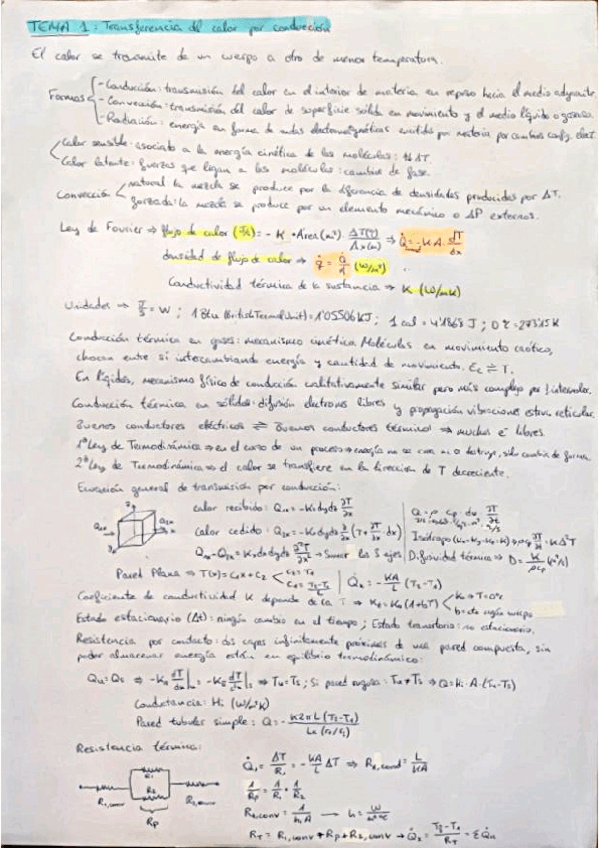 TEMA 1: Transferencia del calor por conducción
El calor se transmite de un cuerpo a otro de menor temperatura.
Formas
- Conducción: transmisión del calor en el interior de materia en reposo hacia el medio adyacente.
- Convección: transmisión del calor de superficie sólida en movimiento y el medio líquido o gaseoso.
- Radiación: energía en forma de ondas electromagnéticas emitidas por materia por cambios config. elect.
Calor sensible: asociado a la energía cinética de las moléculas: ΔT.
Calor latente: fuerzas que ligan a las moléculas: cambio de fase.
Convección
natural: la mezcla se produce por la diferencia de densidades producidas por ΔT.
forzada: la mezcla se produce por un elemento mecánico o ΔP externos.
Ley de Fourier ⇒ flujo de calor (J/s) = - K · Área(m²) · ΔT(T)/Δx(m) ⇒ Q̇ = -KA · dT/dx
densidad de flujo de calor ⇒ q̇ = Q̇/A (W/m²)
Conductividad térmica de la sustancia ⇒ K (W/mK)
Unidades ⇒ J/s = W ; 1 Btu (British Termal Unit) = 1'05506 KJ ; 1 cal = 4'1868 J ; 0 ºC = 273'15 K
Conducción térmica en gases: mecanismo cinética. Moléculas en movimiento caótico,
chocan entre sí intercambiando energía y cantidad de movimiento. Ec ⇌ T.
En líquidos, mecanismo físico de conducción cualitativamente similar pero más complejo por
Conducción térmica en sólidos: difusión electrones libres y propagación vibraciones estruc. reticular.
Buenos conductores eléctricos ⇌ Buenos conductores térmicos ⇒ muchos e⁻ libres.
1ª Ley de Termodinámica ⇒ en el curso de un proceso ⇒ energía no se crea ni destruye, sólo cambia de forma.
2ª Ley de Termodinámica ⇒ el calor se transfiere en la dirección de T decreciente.
Ecuación general de transmisión por conducción:
calor recibido: Q₁ₓ = -K₁dydz ∂T/∂x
calor cedido: Q₂ₓ = -K₁dydz ∂/∂x (T + ∂T/∂x · dx)
Q₁ₓ - Q₂ₓ = K₁dxdydz ∂²T/∂x² → Sumar los 3 ejes
Difusividad térmica ⇒ D = K/ρcp (m²/s)
Pared Plana ⇒ T(x) = C₁x + C₂
Q̇ₓ = - KA/L (T₂ - T₁)
Coeficiente de conductividad K depende de la T ⇒ Kt = K₀(1 + bT)
K₀ ⇒ T = 0ºC
b = cte según cuerpo
Estado estacionario (Δt): ningún cambio en el tiempo ; Estado transitorio: no estacionario.
Resistencia por contacto: dos capas infinitamente próximas de una pared compuesta, sin
poder almacenar energía están en equilibrio termodinámico:
Conductancia: Hi (W/m²K)
Pared tubular simple: Q = - K2πL(T₂-T₁)/Ln(r₂/r₁)
Resistencia térmica:
Q̇₁ = ΔT/R₁ = - KA/L ΔT ⇒ R₂,cond = L/KA
1/Rp = 1/R₁ + 1/R₂
R₁,conv Rp
R₂,conv = 1/h₁A → h = W/m²ºC
RT = R₁,conv + Rp + R₂,conv